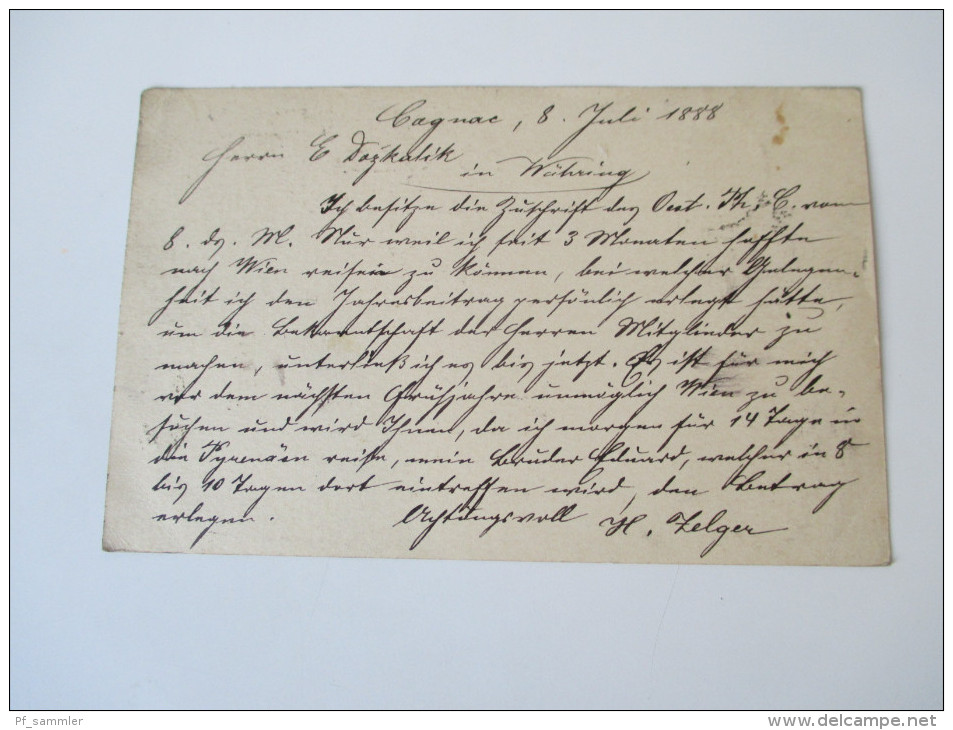 Cagnac, 8. Juli 1888
Herrn E Dozkalik
in Währing
Ich besitze die Zuschrift des Oest. Ph. C. vom
8. ds. M. Nur weil ich seit 3 Monaten hoffte
nach Wien reisen zu können, bei welcher Gelegen-
heit ich den Jahresbeitrag persönlich erlegt hätte,
um die Bekanntschaft der Herren Mitglieder zu
machen, unterließ ich es bis jetzt. Es ist für mich
vor dem nächsten Frühjahre unmöglich Wien zu be-
suchen und wird Ihnen, da ich morgen für 14 Tage in
die Pyrenäen reise, mein Bruder Eduard, welcher in 8
bis 10 Tagen dort eintreffen wird, den Betrag
erlegen. Achtungsvoll H. Zelger
Pf_sammler
www.delcampe.net